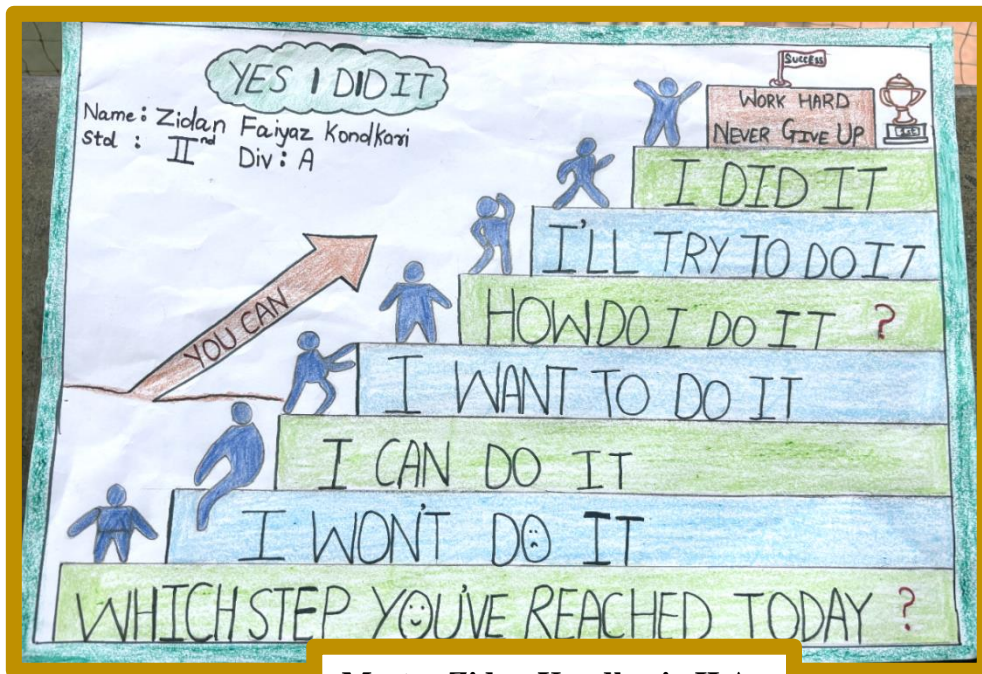 YES I DID IT
Name: Zidan Faiyaz Kondkari
Std : IInd Div: A
SUCCESS
WORK HARD
NEVER GIVE UP
1st
I DID IT
I'LL TRY TO DO IT
HOW DO I DO IT ?
YOU CAN
I WANT TO DO IT
I CAN DO IT
I WON'T DO IT
WHICH STEP YOU'VE REACHED TODAY ?